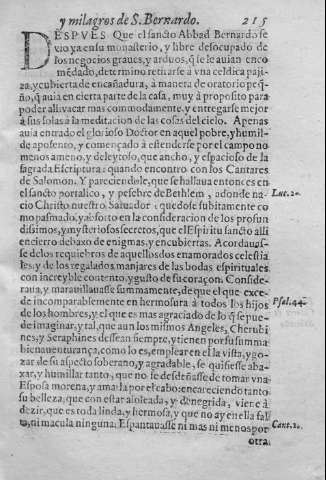 y milagros de S. Bernardo. 215
DESPVES Que el sancto Abbad Bernardo se
vio ya en su monasterio, y libre desocupado de
los negocios graues, y arduos, q̃ se le auian enco
mẽdado, determino retirarse à vna celdica pajiz
za, y cubierta de encañadura, à manera de oratorio peq̃
ño, q̃ auia en cierta parte de la casa, muy à proposito para
poder alli vacar mas commodamente, y entregarse mejor
à sus solas à la meditacion de las cosas del cielo. Apenas
auia entrado el glorioso Doctor en aquel pobre, y humil-
de aposento, y començado à estenderse por el campo no
menos ameno, y deleytoso, que ancho, y espacioso de la
sagrada Escriptura: quando encontro con los Cantares
de Salomon. Y pareciendole, que se hallaua entonces en
el sancto portalico, y pesebre de Bethlẽm, adonde na- Luc. 2.
cio Christo nuestro Saluador: quedose subitamente co
mo pasmado, y absorto en la consideracion de los profun
dissimos, y mysteriosos secretos, que el Espiritu sancto alli
encierro debaxo de enigmas, y encubiertas. Acordaua-
se de los requiebros de aquellos dos enamorados celestia
les, y de los regalados manjares de las bodas espirituales
con increyble contento, y gusto de su coraçon. Conside-
raua, y marauillauasse summamente, de que el que exce-
de incomparablemente en hermosura à todos los hijos Psal. 44.
de los hombres, y el que es mas agraciado de lo q̃ se pue-
de imaginar, y tal, que aun los mismos Angeles, Cherubi
nes, y Seraphines dessean siempre, y tienen por su summa
bienauenturança, como lo es, emplear en el la vista, y go-
zar de su aspecto soberano, y agradable, se quisiesse aba-
xar, y humillar tanto, que no se desdeñasse de tomar vna
Esposa morena, y amarla por el cabo encareciendo tanto
su belleza, que con estar asoleada, y denegrida, viene à
dezir, que es toda linda, y hermosa, y que no ay en ella fal
to, ni macula ninguna. Espantauasse ni mas ni menos por Cant. 1.
otra